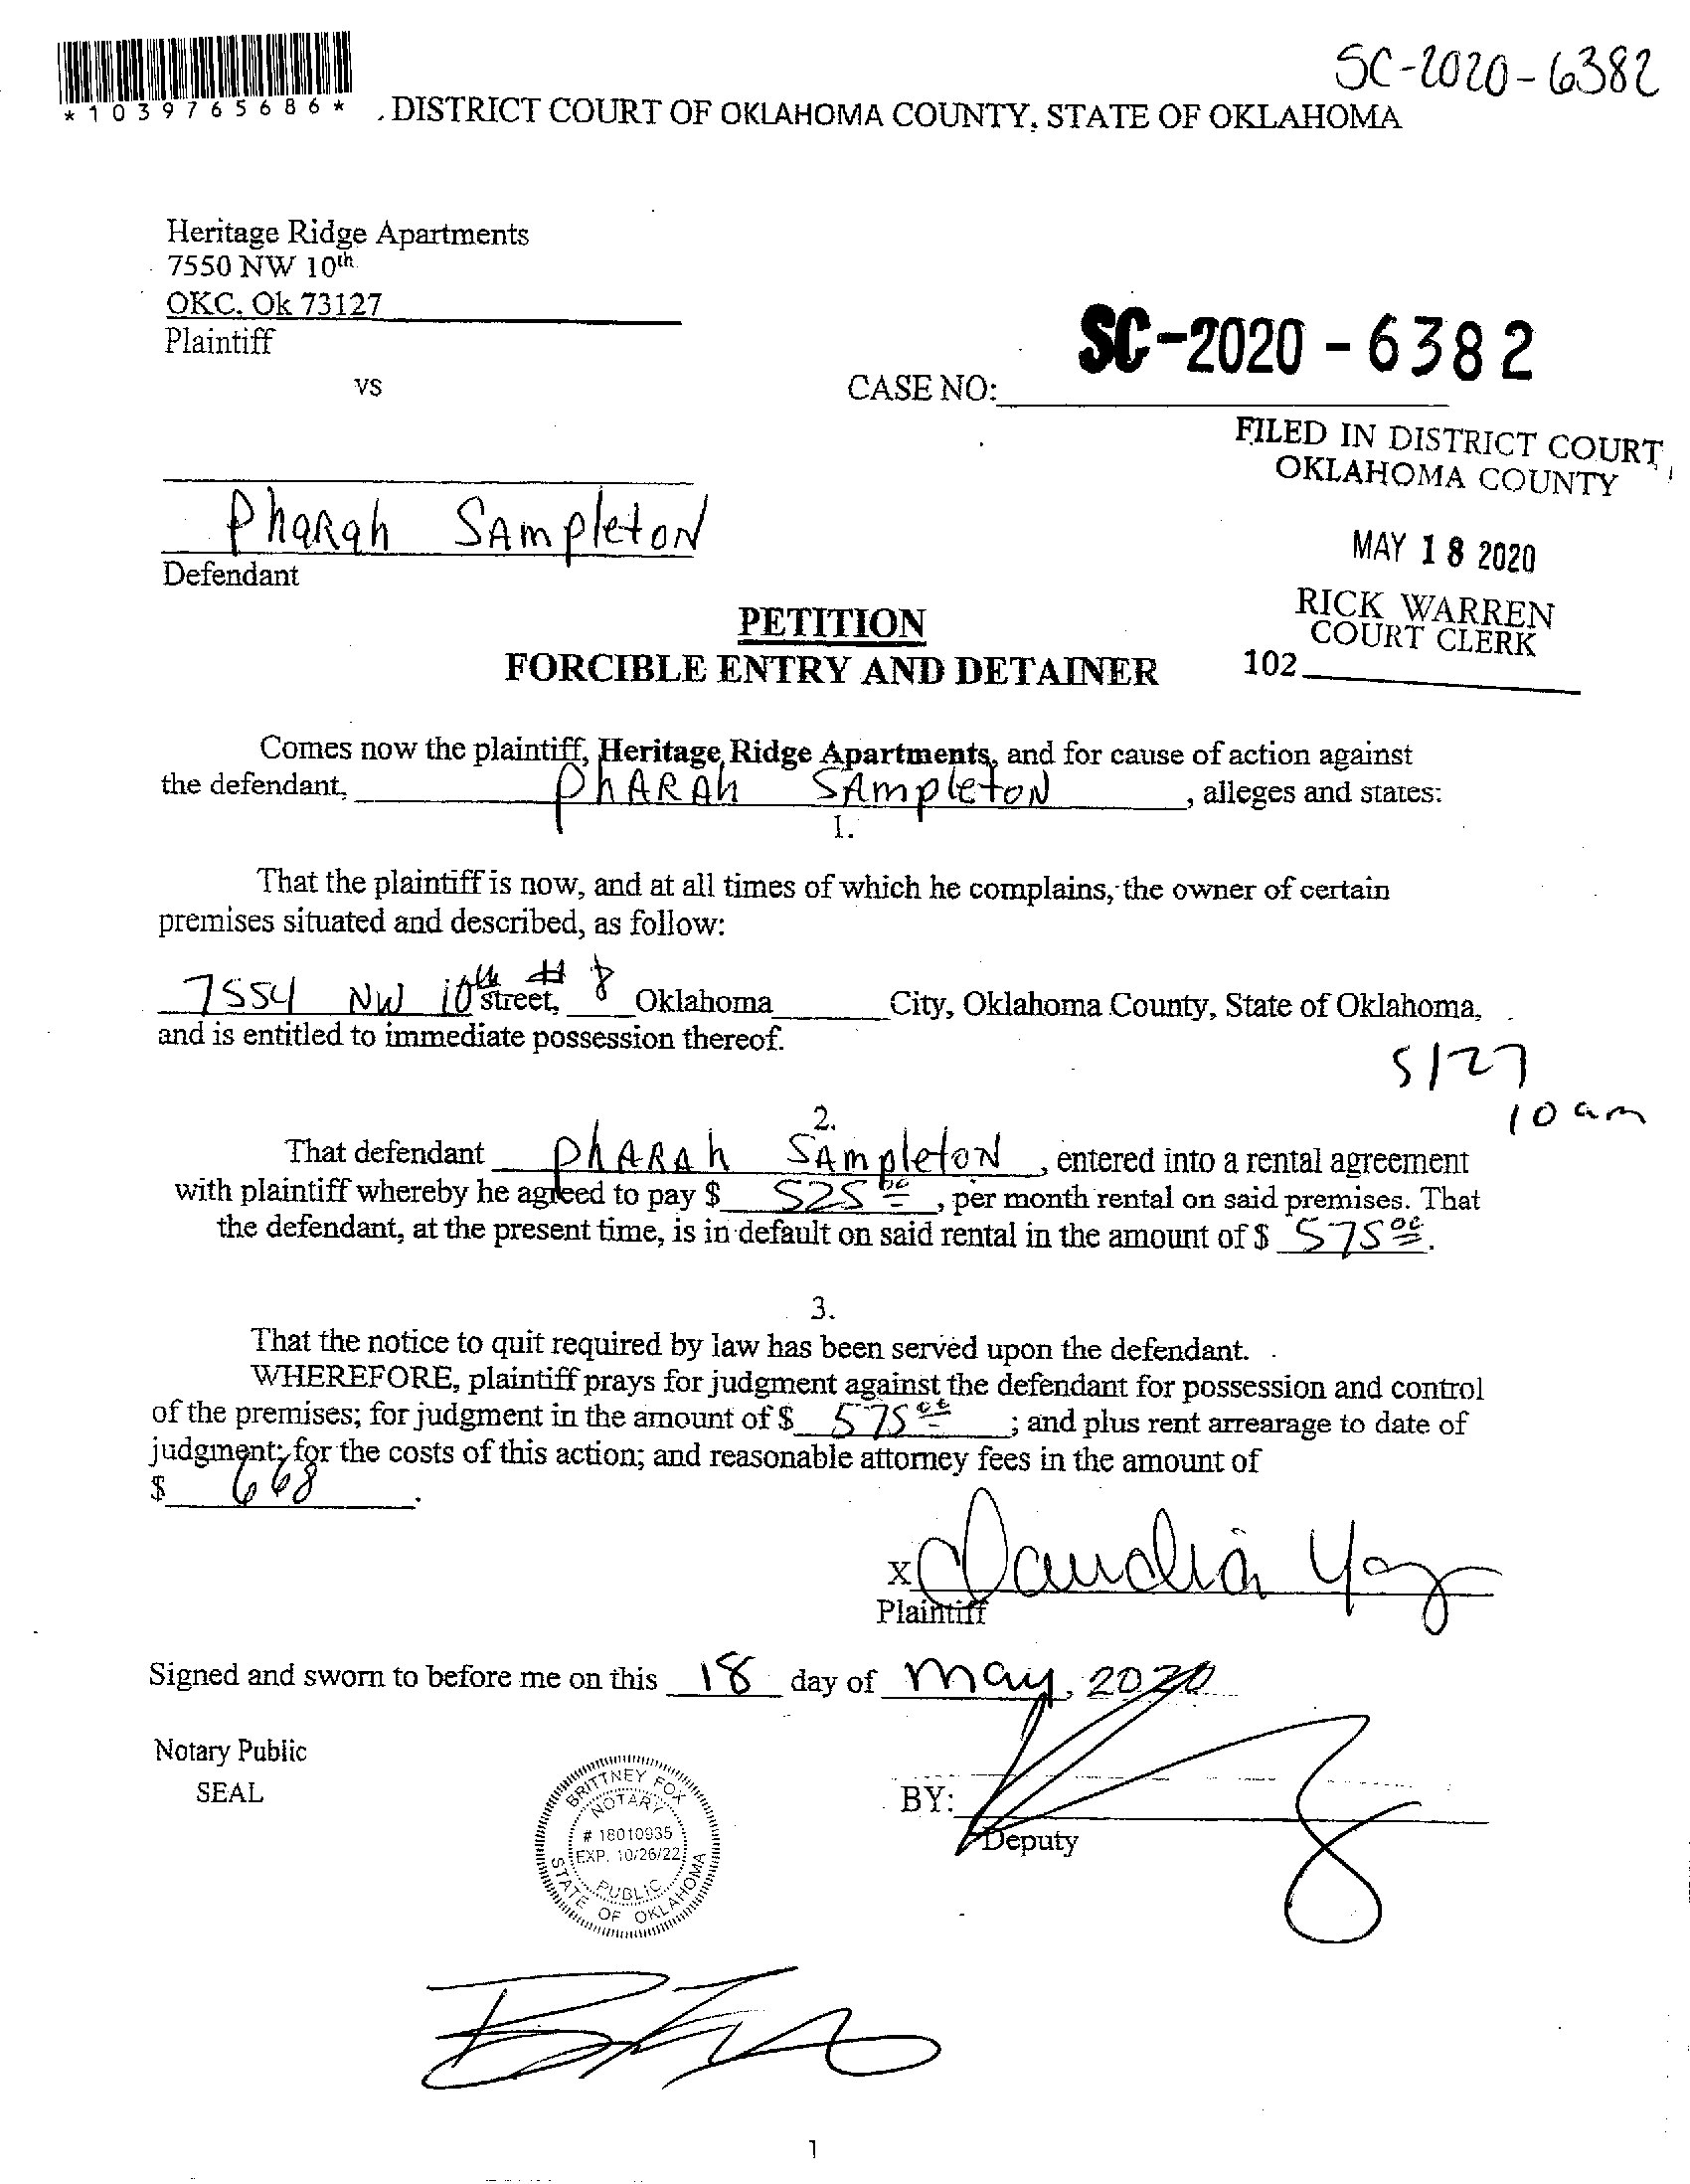 SC-2020-6382
*1039765686*
DISTRICT COURT OF OKLAHOMA COUNTY, STATE OF OKLAHOMA
Heritage Ridge Apartments
7550 NW 10th
OKC, Ok 73127
Plaintiff
vs
CASE NO: SC-2020-6382
FILED IN DISTRICT COURT
OKLAHOMA COUNTY
MAY 18 2020
RICK WARREN
COURT CLERK
102
Pharah Sampleton
Defendant
PETITION
FORCIBLE ENTRY AND DETAINER
Comes now the plaintiff, Heritage Ridge Apartments, and for cause of action against
the defendant, PhARAh SAmpletoN, alleges and states:
1.
That the plaintiff is now, and at all times of which he complains, the owner of certain
premises situated and described, as follow:
7554 NW 10th street, #8 Oklahoma City, Oklahoma County, State of Oklahoma,
and is entitled to immediate possession thereof.
5/27
10 am
2.
That defendant PhARAh SAmpletoN, entered into a rental agreement
with plaintiff whereby he agreed to pay $ 525 00, per month rental on said premises. That
the defendant, at the present time, is in default on said rental in the amount of $ 575 00.
3.
That the notice to quit required by law has been served upon the defendant.
WHEREFORE, plaintiff prays for judgment against the defendant for possession and control
of the premises; for judgment in the amount of $ 575 00; and plus rent arrearage to date of
judgment; for the costs of this action; and reasonable attorney fees in the amount of
$ 668.
x Claudia
Plaintiff
Signed and sworn to before me on this 18 day of May, 2020
Notary Public
SEAL
BRITTNEY FOX
NOTARY
# 18010935
EXP. 10/26/22
PUBLIC
STATE OF OKLAHOMA
BY:
Deputy
1